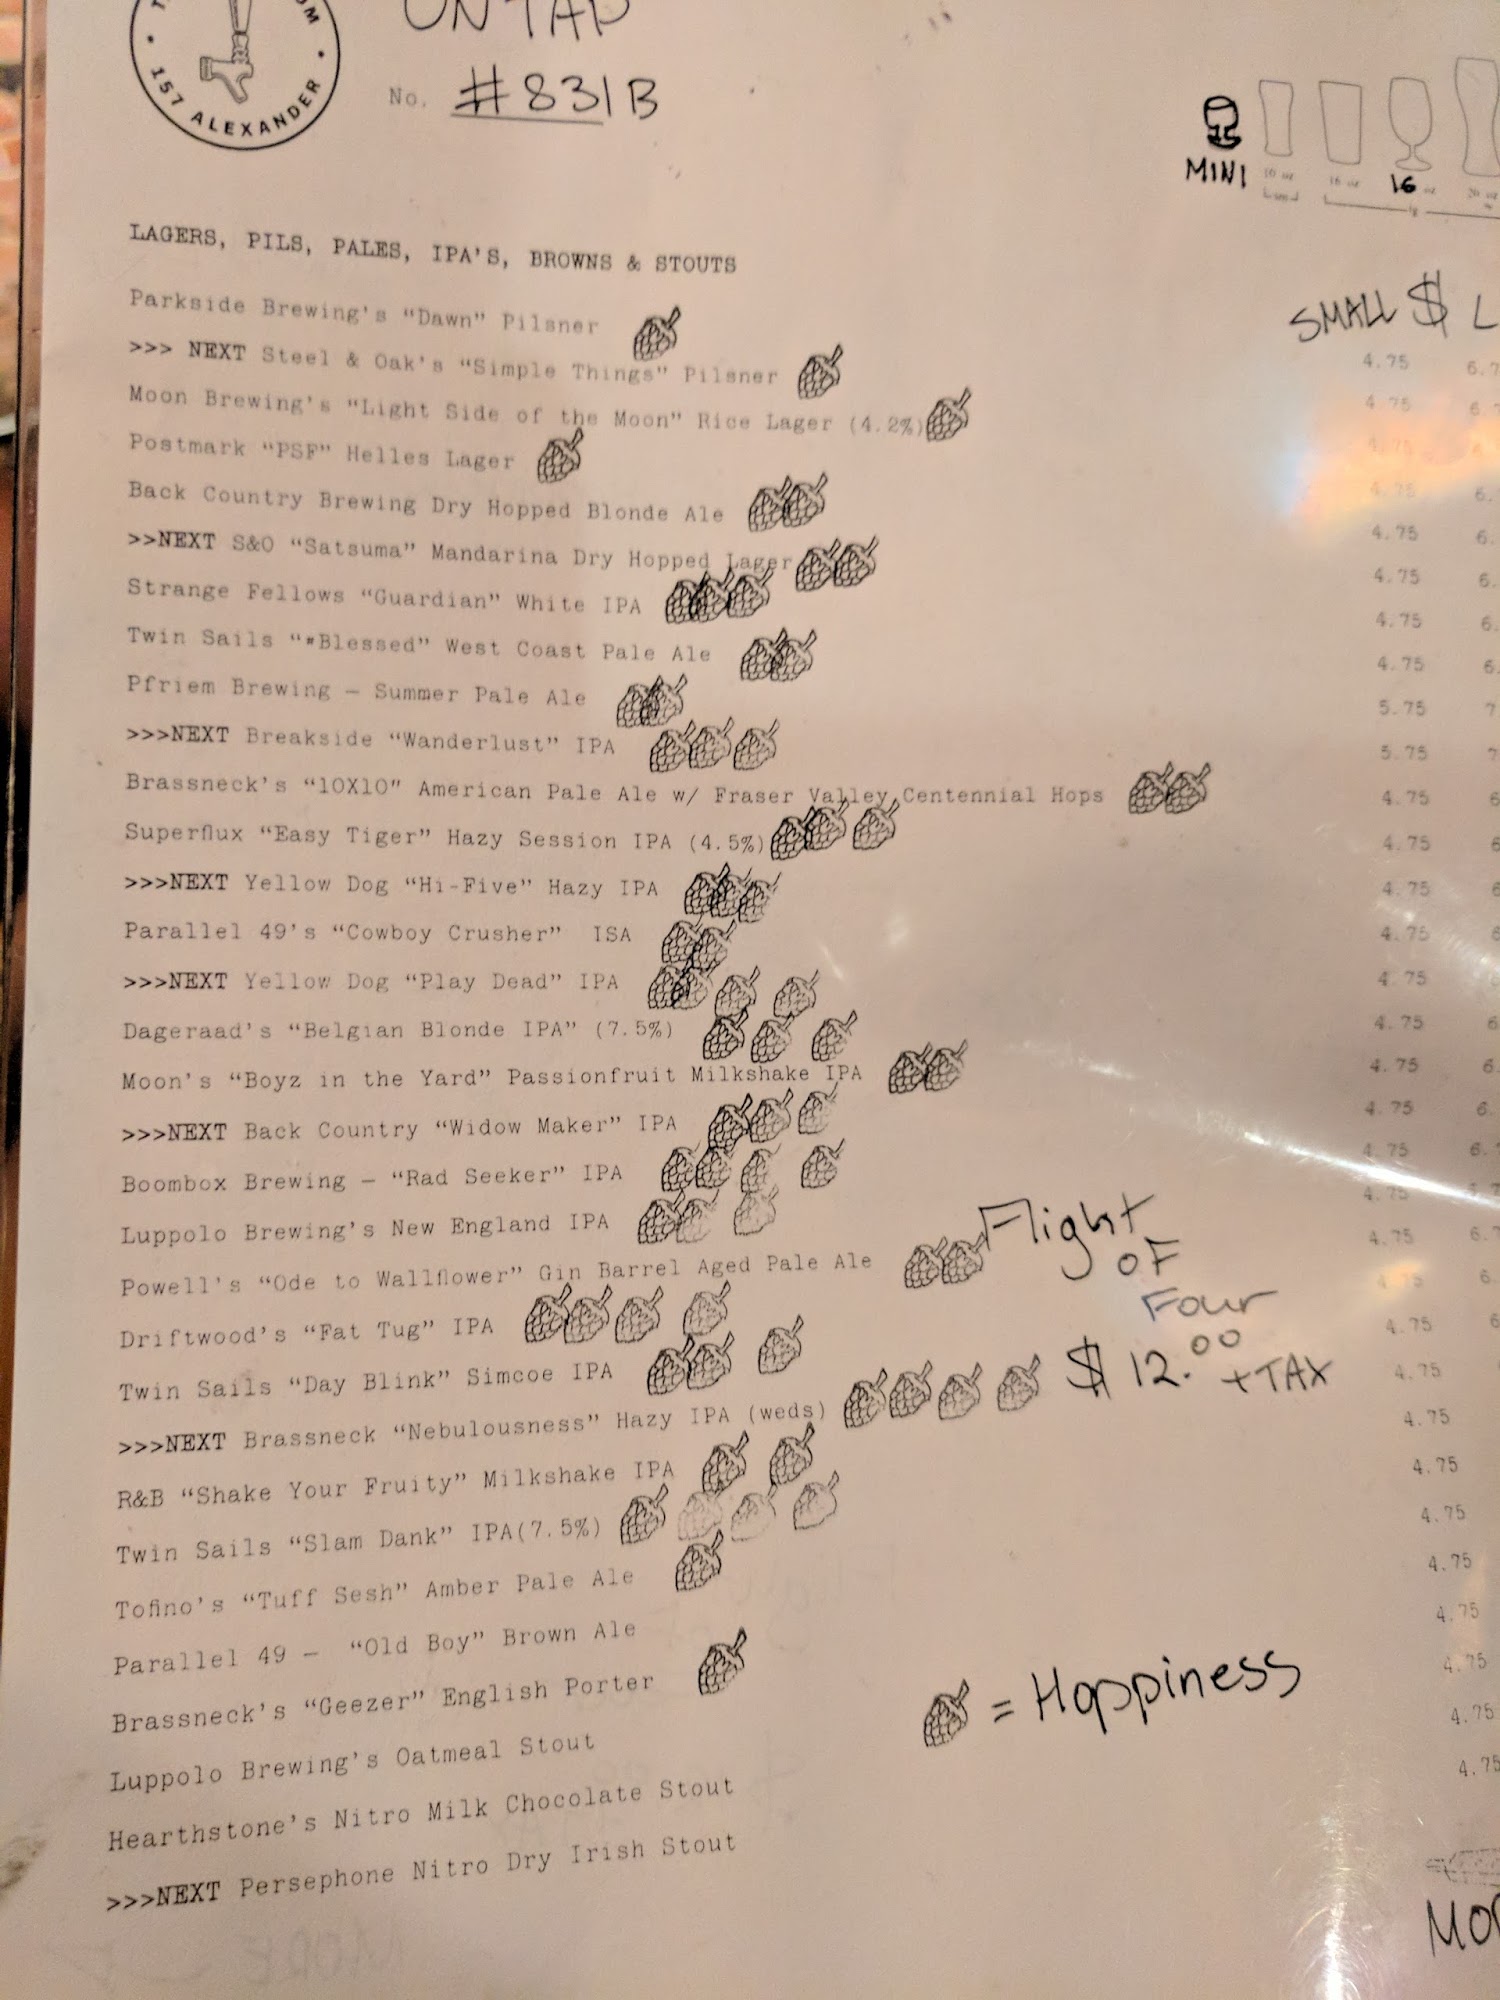 157 ALEXANDER
ON TAP
No. #831B
MINI
10 oz
16 oz
16 oz
20 oz
LAGERS, PILS, PALES, IPA'S, BROWNS & STOUTS
SMALL $ L
Parkside Brewing's “Dawn” Pilsner 4.75
>>> NEXT Steel & Oak's “Simple Things” Pilsner 4.75
Moon Brewing's “Light Side of the Moon” Rice Lager (4.2%) 4.75
Postmark “PSF” Helles Lager 4.75
Back Country Brewing Dry Hopped Blonde Ale 4.75
>>NEXT S&O “Satsuma” Mandarina Dry Hopped Lager 4.75
Strange Fellows “Guardian” White IPA 4.75
Twin Sails “#Blessed” West Coast Pale Ale 4.75
Pfriem Brewing – Summer Pale Ale 5.75
>>>NEXT Breakside “Wanderlust” IPA 5.75
Brassneck's “10X10” American Pale Ale w/ Fraser Valley Centennial Hops 4.75
Superflux “Easy Tiger” Hazy Session IPA (4.5%) 4.75
>>>NEXT Yellow Dog “Hi-Five” Hazy IPA 4.75
Parallel 49's “Cowboy Crusher” ISA 4.75
>>>NEXT Yellow Dog “Play Dead” IPA 4.75
Dageraad's “Belgian Blonde IPA” (7.5%) 4.75
Moon's “Boyz in the Yard” Passionfruit Milkshake IPA 4.75
>>>NEXT Back Country “Widow Maker” IPA 4.75
Boombox Brewing – “Rad Seeker” IPA 4.75
Luppolo Brewing's New England IPA 4.75
Powell's “Ode to Wallflower” Gin Barrel Aged Pale Ale 4.75
Driftwood's “Fat Tug” IPA 4.75
Twin Sails “Day Blink” Simcoe IPA 4.75
>>>NEXT Brassneck “Nebulousness” Hazy IPA (weds) 4.75
R&B “Shake Your Fruity” Milkshake IPA 4.75
Twin Sails “Slam Dank” IPA(7.5%) 4.75
Tofino's “Tuff Sesh” Amber Pale Ale 4.75
Parallel 49 – “Old Boy” Brown Ale 4.75
Brassneck's “Geezer” English Porter 4.75
Luppolo Brewing's Oatmeal Stout 4.75
Hearthstone's Nitro Milk Chocolate Stout 4.75
>>>NEXT Persephone Nitro Dry Irish Stout
Flight
OF
Four
$ 12.00
+TAX
= Hoppiness